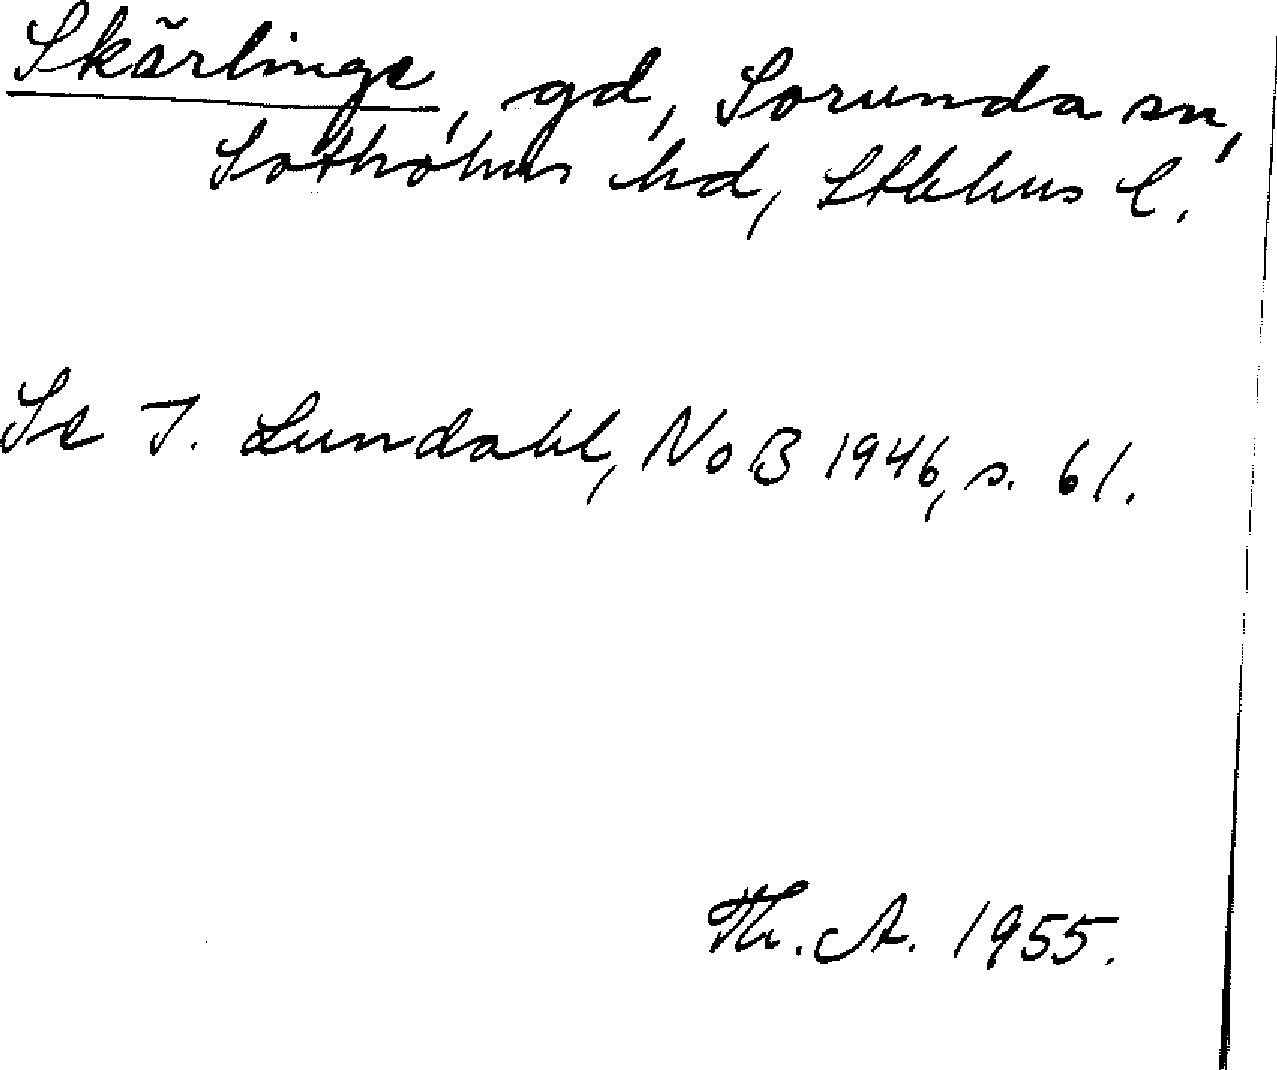 Skärlinge, gd, Sorunda sn,
Sotholms hd, Sthlms l.
Se I. Lundahl, NoB 1946, s. 61.
Th. A. 1955.